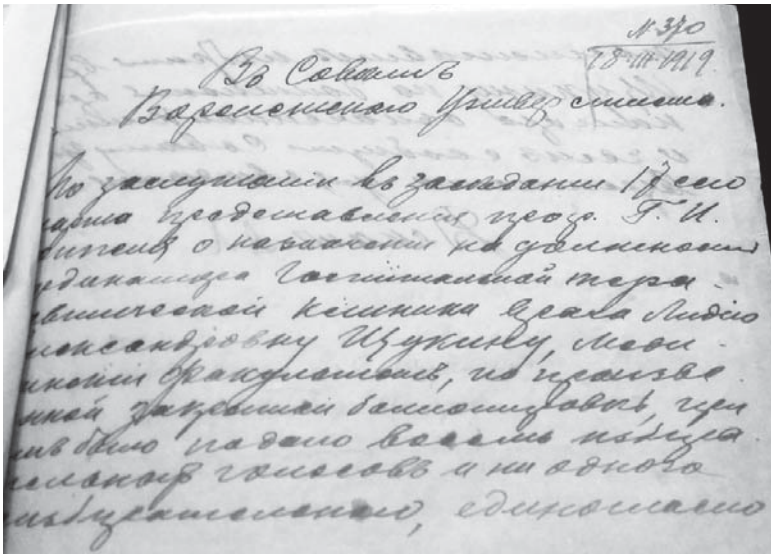 N 370
18-III-1919.
Въ Совѣтъ
Воронежскаго Университета.
По заслушаніи въ засѣданіи 17 сего
марта представленія проф. Г. И.
о назначеніи на должность
ординатора Госпитальной тера-
певтической клиники врача Лидію
Александровну Щукину, Меди-
цинскій факультетъ, по произве-
денной закрытой баллотировкѣ, при
чемъ было подано восемь избира-
тельныхъ голосовъ и ни одного
неизбирательнаго, единогласно